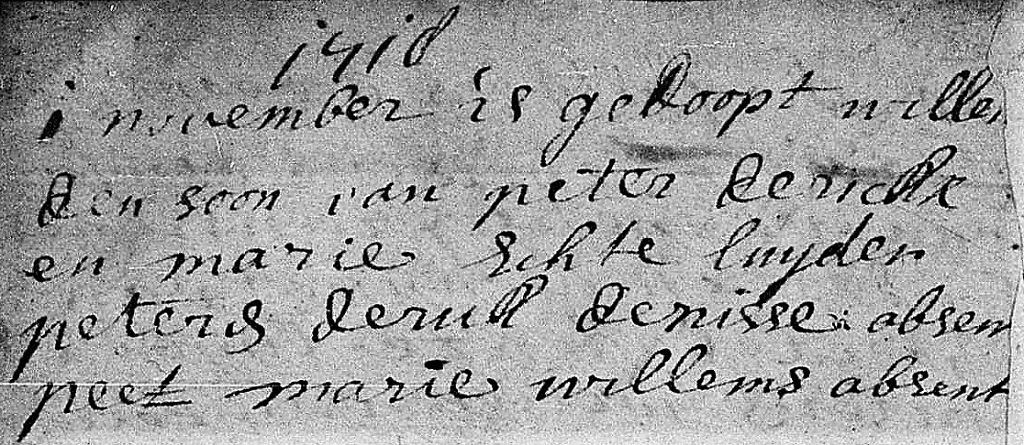 1718
1 november is gedoopt willem
den soon van peter derickx
en marie Echte luyden
peters derick denisse absent
peet marie willems absent